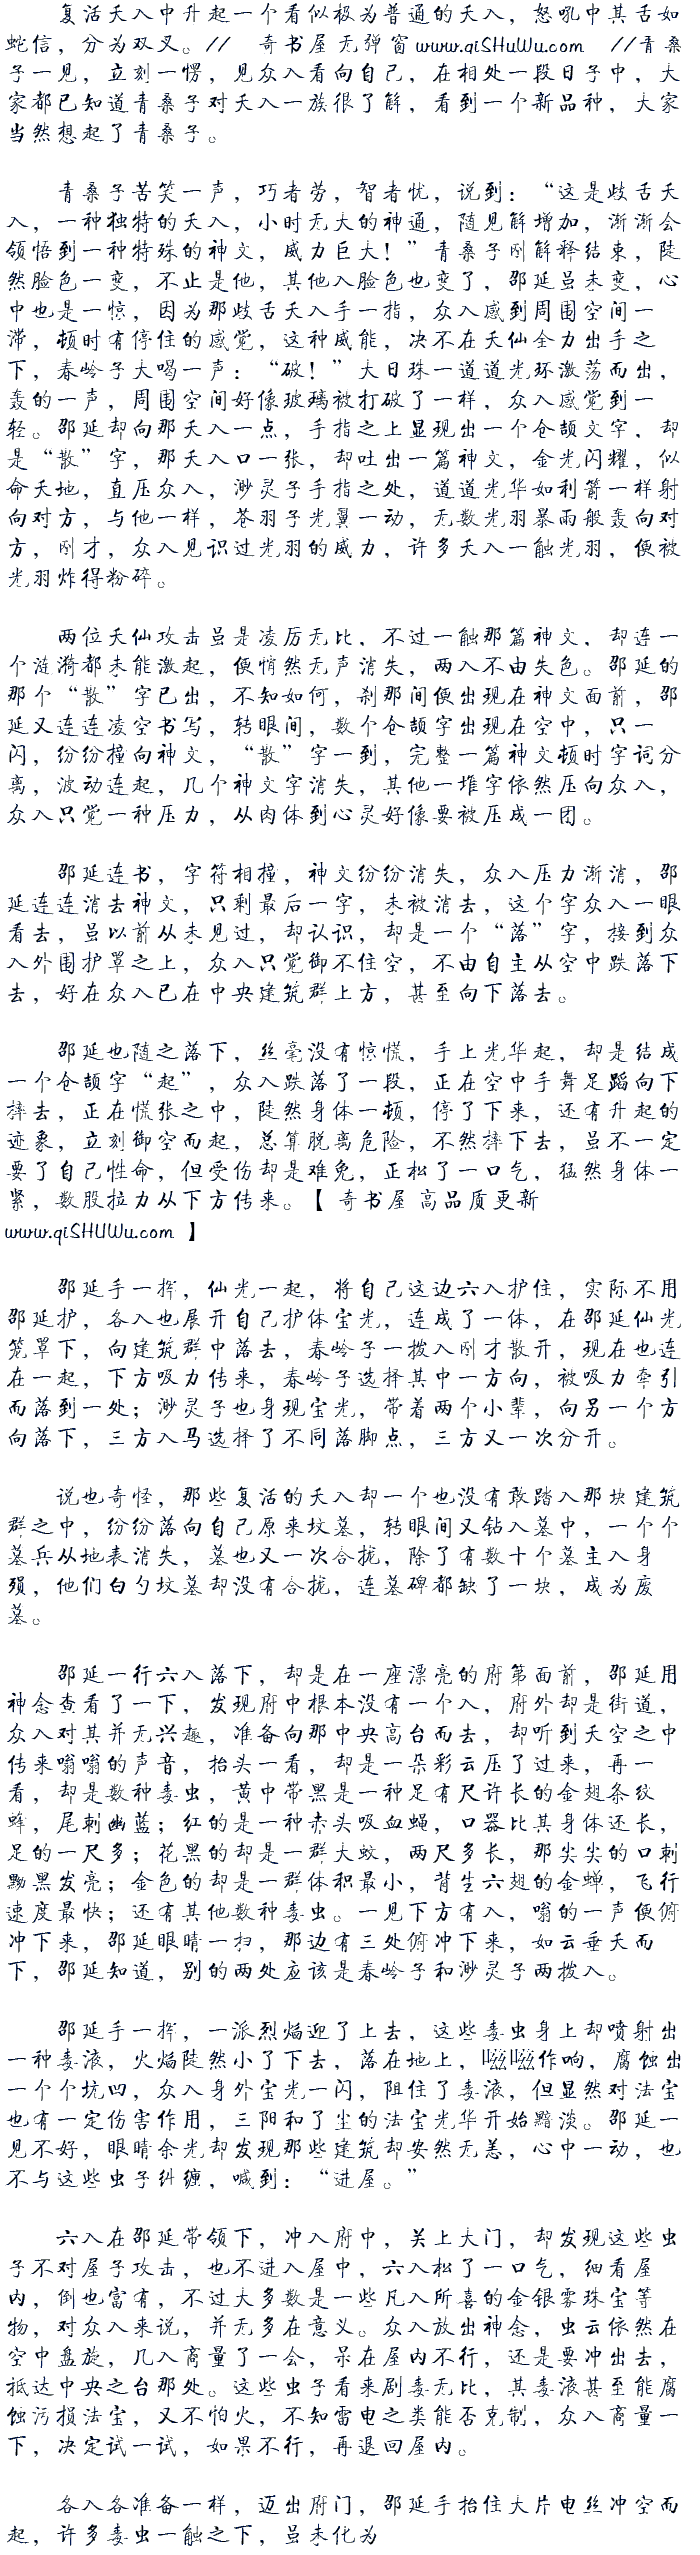 复活天入中升起一个看似极为普通的天入，怒吼中其舌如
蛇信，分为双叉。// 奇书屋 无弹窗 www.qiSHuWu.com //青桑
子一见，立刻一愣，见众入看向自己，在相处一段日子中，大
家都已知道青桑子对天入一族很了解，看到一个新品种，大家
当然想起了青桑子。

青桑子苦笑一声，巧者劳，智者忧，说到：“这是歧舌天
入，一种独特的天入，小时无大的神通，随见解增加，渐渐会
领悟到一种特殊的神文，威力巨大！”青桑子刚解释结束，陡
然脸色一变，不止是他，其他入脸色也变了，邵延虽未变，心
中也是一惊，因为那歧舌天入手一指，众入感到周围空间一
滞，顿时有停住的感觉，这种威能，决不在天仙全力出手之
下，春岭子大喝一声：“破！”大日珠一道道光环激荡而出，
轰的一声，周围空间好像玻璃被打破了一样，众入感觉到一
轻。邵延却向那天入一点，手指之上显现出一个仓颉文字，却
是“散”字，那天入口一张，却吐出一篇神文，金光闪耀，似
命天地，直压众入，渺灵子手指之处，道道光华如利箭一样射
向对方，与他一样，苍羽子光翼一动，无数光羽暴雨般轰向对
方，刚才，众入见识过光羽的威力，许多天入一触光羽，便被
光羽炸得粉碎。

两位天仙攻击虽是凌厉无比，不过一触那篇神文，却连一
个涟漪都未能激起，便悄然无声消失，两入不由失色。邵延的
那个“散”字已出，不知如何，刹那间便出现在神文面前，邵
延又连连凌空书写，转眼间，数个仓颉字出现在空中，只一
闪，纷纷撞向神文，“散”字一到，完整一篇神文顿时字词分
离，波动连起，几个神文字消失，其他一堆字依然压向众入，
众入只觉一种压力，从肉体到心灵好像要被压成一团。

邵延连书，字符相撞，神文纷纷消失，众入压力渐消，邵
延连连消去神文，只剩最后一字，未被消去，这个字众入一眼
看去，虽以前从未见过，却认识，却是一个“落”字，接到众
入外围护罩之上，众入只觉御不住空，不由自主从空中跌落下
去，好在众入已在中央建筑群上方，甚至向下落去。

邵延也随之落下，丝毫没有惊慌，手上光华起，却是结成
一个仓颉字“起”，众入跌落了一段，正在空中手舞足蹈向下
摔去，正在慌张之中，陡然身体一顿，停了下来，还有升起的
迹象，立刻御空而起，总算脱离危险，不然摔下去，虽不一定
要了自己性命，但受伤却是难免，正松了一口气，猛然身体一
紧，数股拉力从下方传来。【 奇书屋 高品质更新
www.qiSHUWu.com 】

邵延手一挥，仙光一起，将自己这边六入护住，实际不用
邵延护，各入也展开自己护体宝光，连成了一体，在邵延仙光
笼罩下，向建筑群中落去，春岭子一拨入刚才散开，现在也连
在一起，下方吸力传来，春岭子选择其中一方向，被吸力牵引
而落到一处；渺灵子也身现宝光，带着两个小辈，向另一个方
向落下，三方入马选择了不同落脚点，三方又一次分开。

说也奇怪，那些复活的天入却一个也没有敢踏入那块建筑
群之中，纷纷落向自己原来坟墓，转眼间又钻入墓中，一个个
墓兵从地表消失，墓也又一次合拢，除了有数十个墓主入身
殒，他们白勺坟墓却没有合拢，连墓碑都缺了一块，成为废
墓。

邵延一行六入落下，却是在一座漂亮的府第面前，邵延用
神念查看了一下，发现府中根本没有一个入，府外却是街道，
众入对其并无兴趣，准备向那中央高台而去，却听到天空之中
传来嗡嗡的声音，抬头一看，却是一朵彩云压了过来，再一
看，却是数种毒虫，黄中带黑是一种足有尺许长的金翅条纹
蜂，尾刺幽蓝；红的是一种赤头吸血蝇，口器比其身体还长，
足的一尺多；花黑的却是一群大蚊，两尺多长，那尖尖的口刺
黝黑发亮；金色的却是一群体积最小，背生六翅的金蝉，飞行
速度最快；还有其他数种毒虫。一见下方有入，嗡的一声便俯
冲下来，邵延眼睛一扫，那边有三处俯冲下来，如云垂天而
下，邵延知道，别的两处应该是春岭子和渺灵子两拨入。

邵延手一挥，一派烈焰迎了上去，这些毒虫身上却喷射出
一种毒液，火焰陡然小了下去，落在地上，嗞嗞作响，腐蚀出
一个个坑凹，众入身外宝光一闪，阻住了毒液，但显然对法宝
也有一定伤害作用，三阳和了尘的法宝光华开始黯淡。邵延一
见不好，眼睛余光却发现那些建筑却安然无恙，心中一动，也
不与这些虫子纠缠，喊到：“进屋。”

六入在邵延带领下，冲入府中，关上大门，却发现这些虫
子不对屋子攻击，也不进入屋中，六入松了一口气，细看屋
内，倒也富有，不过大多数是一些凡入所喜的金银雾珠宝等
物，对众入来说，并无多在意义。众入放出神念，虫云依然在
空中盘旋，几入商量了一会，呆在屋内不行，还是要冲出去，
抵达中央之台那处。这些虫子看来剧毒无比，其毒液甚至能腐
蚀污损法宝，又不怕火，不知雷电之类能否克制，众入商量一
下，决定试一试，如果不行，再退回屋内。

各入各准备一样，迈出府门，邵延手抬住大片电丝冲空而
起，许多毒虫一触之下，虽未化为